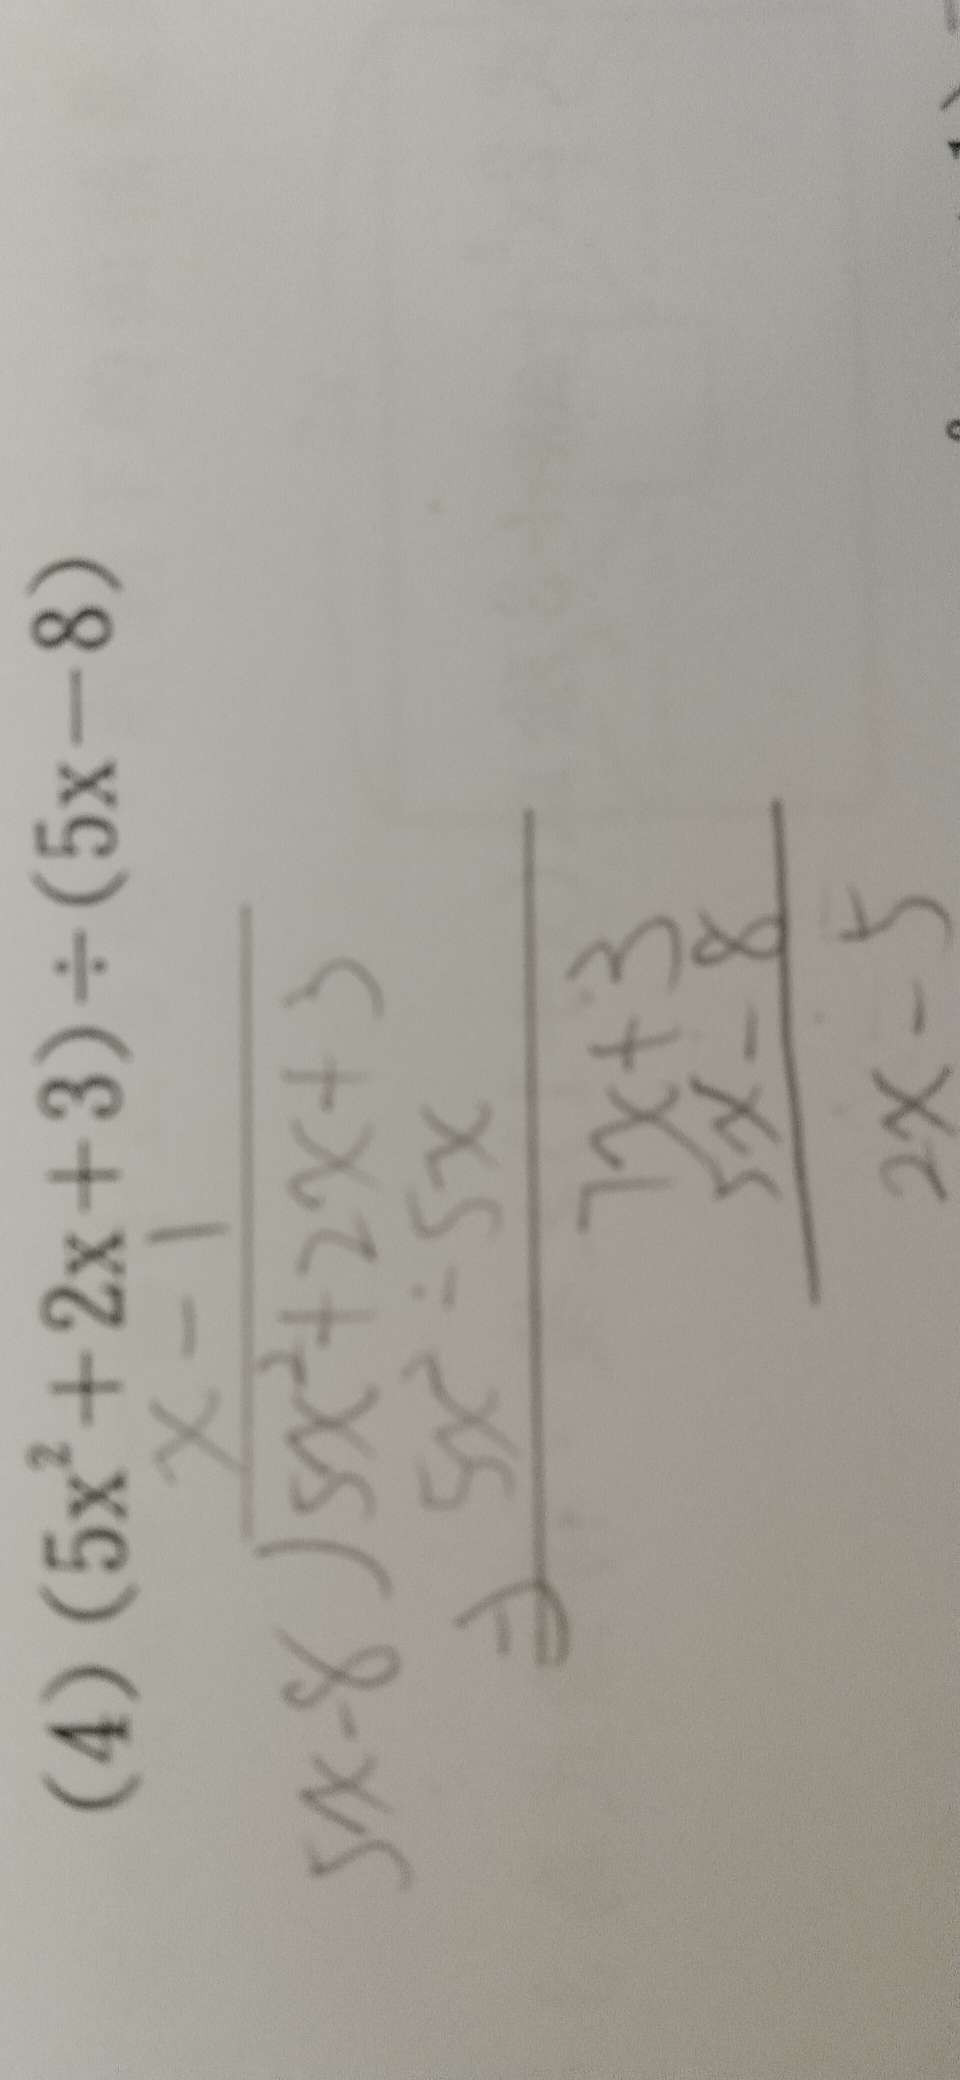 (4) (5x²+2x+3)÷(5x−8)
x - 1
5x-8 ) 5x²+2x+3
5x² - 5x
7x+3
5x-8
2x - 5